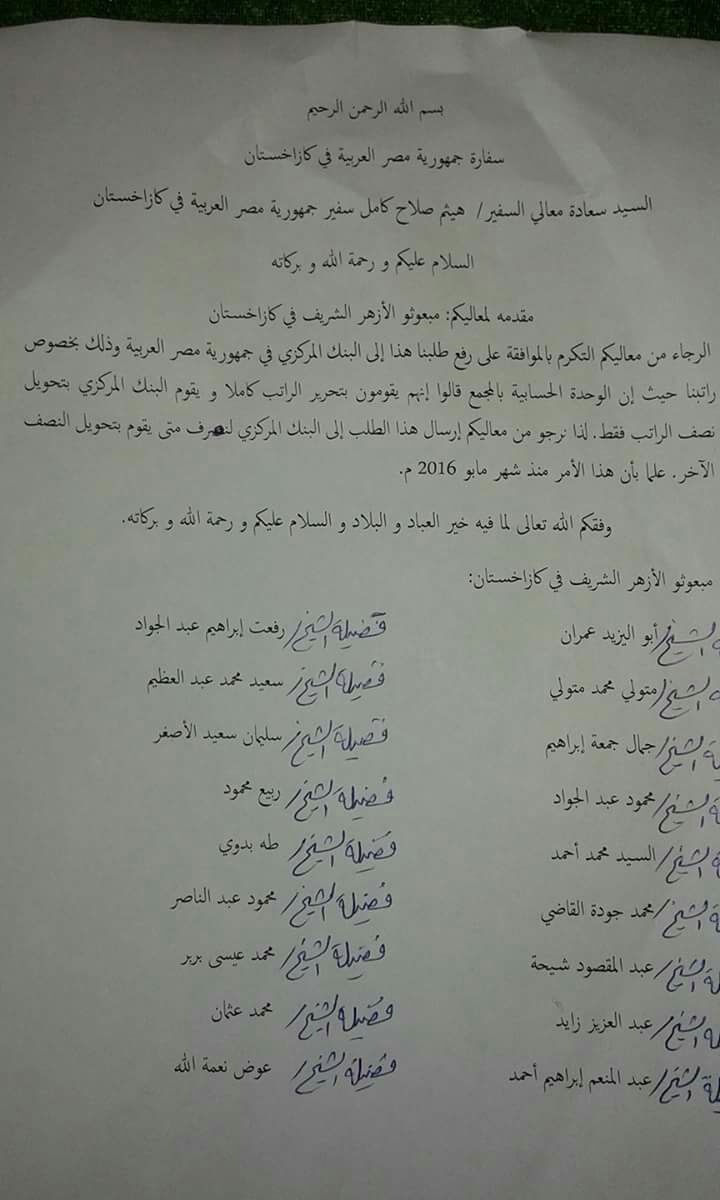 بسم الله الرحمن الرحيم
سفارة جمهورية مصر العربية في كازاخستان
السيد سعادة معالي السفير/ هيثم صلاح كامل سفير جمهورية مصر العربية في كازاخستان
السلام عليكم و رحمة الله و بركاته
مقدمه لمعاليكم: مبعوثو الأزهر الشريف في كازاخستان
الرجاء من معاليكم التكرم بالموافقة على رفع طلبنا هذا إلى البنك المركزي في جمهورية مصر العربية وذلك بخصوص
راتبنا حيث إن الوحدة الحسابية بالمجمع قالوا إنهم يقومون بتحرير الراتب كاملا و يقوم البنك المركزي بتحويل
نصف الراتب فقط. لذا نرجو من معاليكم إرسال هذا الطلب إلى البنك المركزي لنعرف متى يقوم بتحويل النصف
الآخر. علما بأن هذا الأمر منذ شهر مابو 2016 م.
وفقكم الله تعالى لما فيه خير العباد و البلاد و السلام عليكم و رحمة الله و بركاته.
مبعوثو الأزهر الشريف في كازاخستان:
الشيخ/ أبو اليزيد عمران فضيلة الشيخ/ رفعت إبراهيم عبد الجواد
الشيخ/ متولي محمد متولي فضيلة الشيخ/ سعيد محمد عبد العظيم
الشيخ/ جمال جمعة إبراهيم فضيلة الشيخ/ سليمان سعيد الأصغر
الشيخ/ محمود عبد الجواد فضيلة الشيخ/ ربيع محمود
الشيخ/ السيد محمد أحمد فضيلة الشيخ/ طه بدوي
الشيخ/ محمد جودة القاضي فضيلة الشيخ/ محمود عبد الناصر
الشيخ/ عبد المقصود شيحة فضيلة الشيخ/ محمد عيسى بربر
الشيخ/ عبد العزيز زايد فضيلة الشيخ/ محمد عثمان
الشيخ/ عبد المنعم إبراهيم أحمد فضيلة الشيخ/ عوض نعمة الله